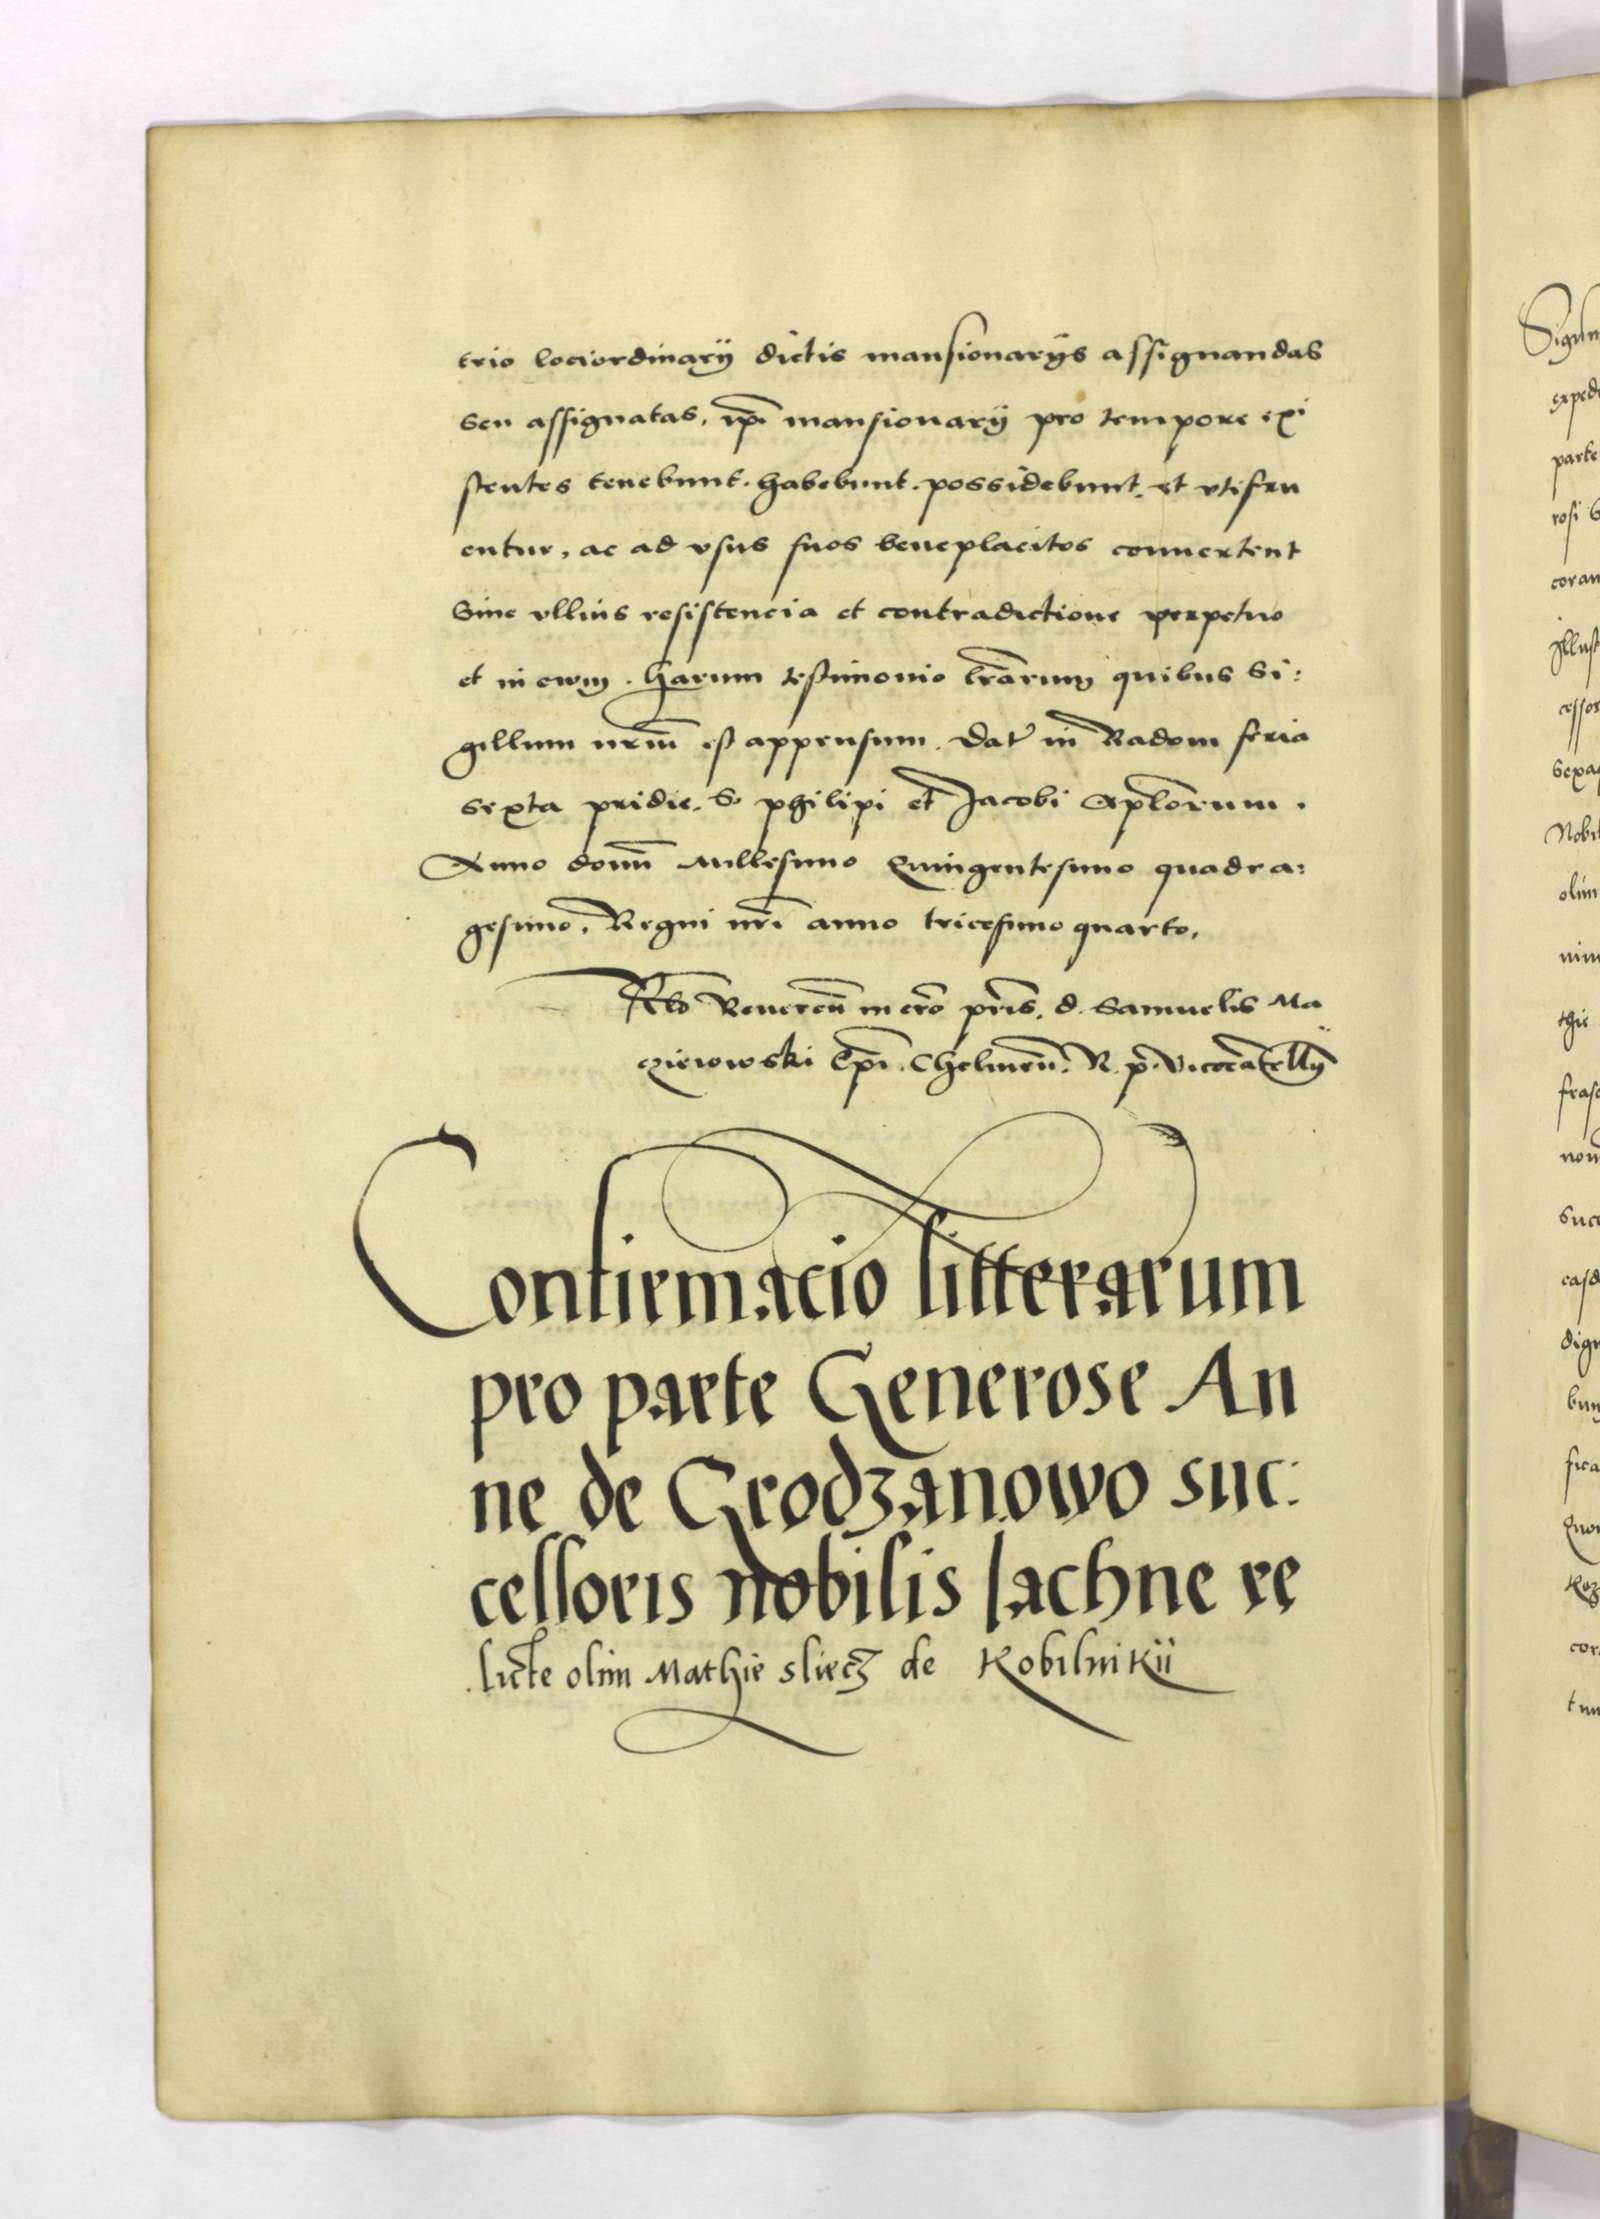 trio lociordinarÿ dictis mansionarÿs assignandas
seu assignatas, ip̄i mansionarÿ pro tempore exi
stentes tenebunt. habebunt. possidebunt. et vtifru
entur, ac ad vsus suos beneplacitos conuertent
Sine vllius resistencia et contradictione perpetuo
et in ewm. Harum testimonio lr̄arum quibus Si:
gillum nrm̄ est appensum. Dat̄ in Radom feria
sexta pridie. S. philipi et Jacobi Apl̄orum.
Anno domi̅ Millesimo Quingentesimo quadra:
gesimo. Regni nr̄i anno tricesimo quarto.
Reuereñ in cr̄o pr̄is. d. Samuelis Ma
czieiowski Ep̄i. Chelmeñ. R. p. Vicecācellÿ
Confirmacio litterarum
pro parte Generose An
ne de Grodzanowo suc:
cessoris nobilis lachne re
licte olim Mathie sliecz de Kobilnikii
Sigism
exped
parte
rosi
coram
Illust
cessor
sexag
Nobil
olim
thie
succ
dign